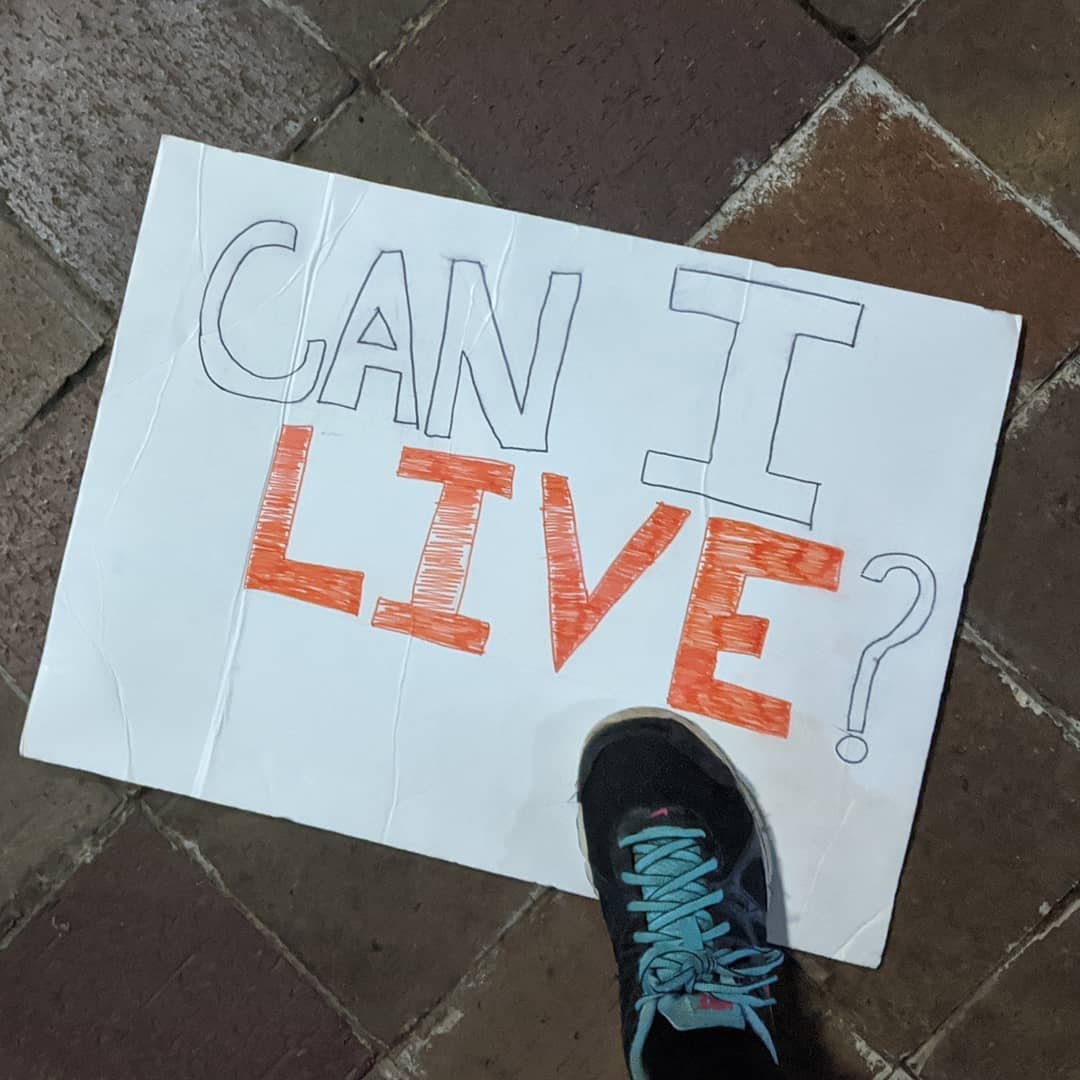 CAN I
LIVE?